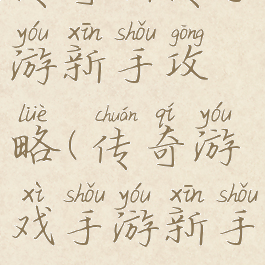 yóu xīn shǒu gōng
游新手攻
lüè chuán qí yóu
略(传奇游
xì shǒu yóu xīn shǒu
戏手游新手